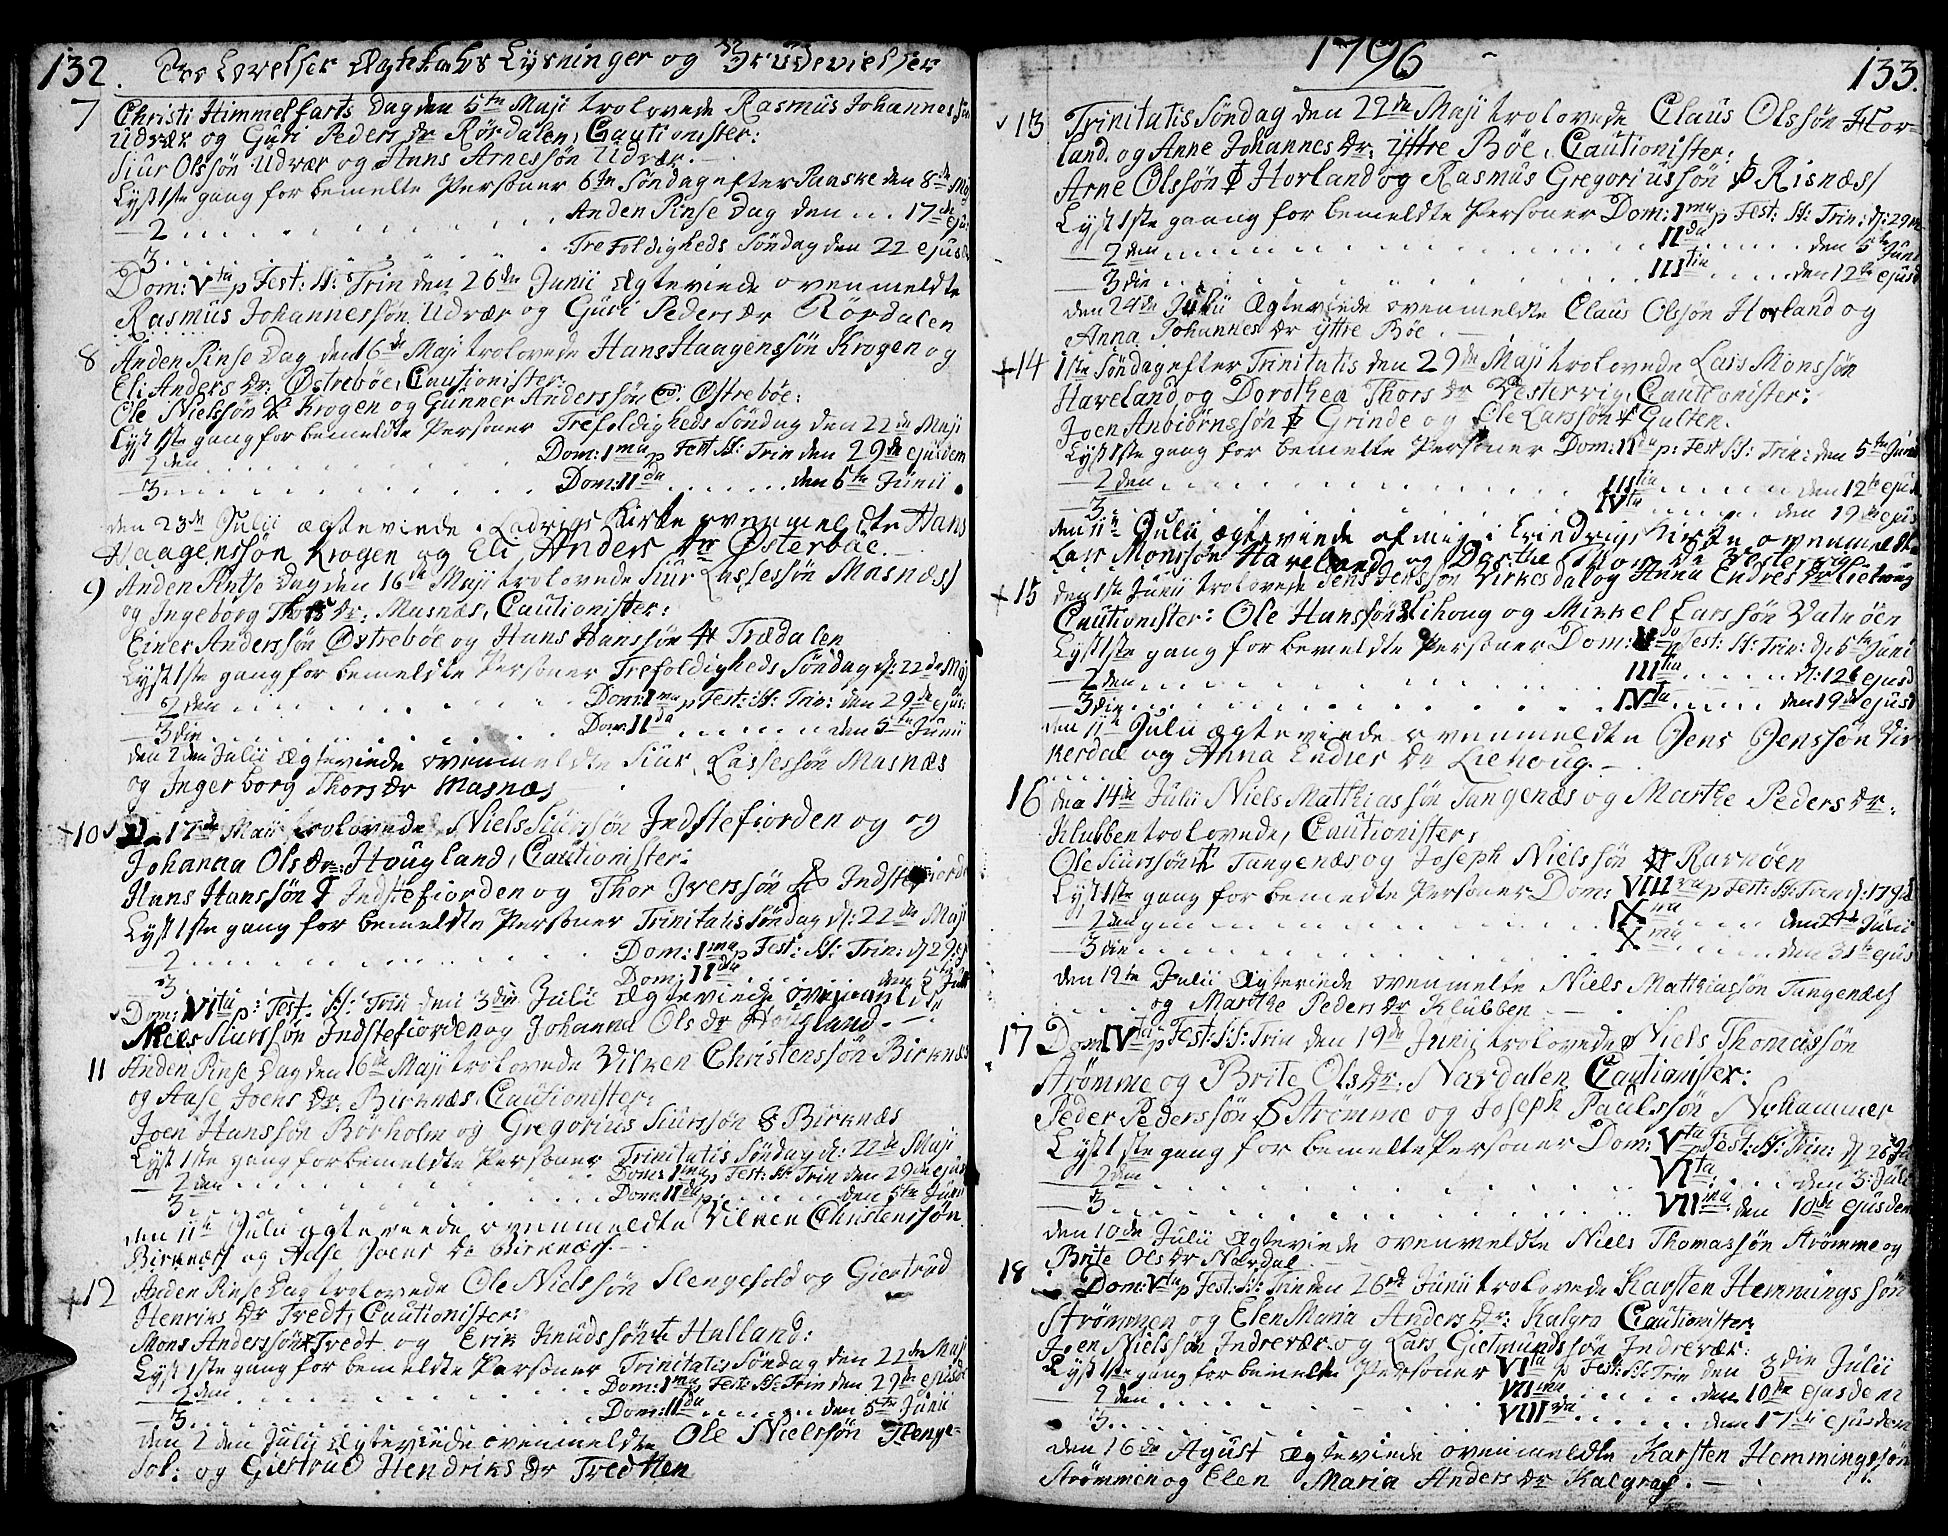 132. Trolovelser Ægteskabs Lysninger og Brudevielser
7 Christi Himmelfarts Dag den 5te Maji trolovede Rasmus Johannessøn
Udvær og Guri Peders Dr Rørdalen, Cautionister:
Siur Olssøn Udvær og Hans Arnessøn Udvær.
Lyst 1ste gang for bemelte Personer 6te Søndag efter Paaske den 8de Maj
— 2 . . . . Anden Pinse Dag den . . . 17de eju:
— 3 . . . . Trefoldigheds Søndag den 22 ejusd
Dom: Vta p Fest: S: Trin den 26de Junii Ægteviede ovenmeldte
Rasmus Johannessøn Udvær og Guri Peders Dr Rørdalen
8 Anden Pinse Dag den 16de Maji trolovede Hans Haagenssøn Krogen og
Eli Anders Dr. Østrebøe, Cautionister
Ole Nielssøn Krogen og Gunner Anderssøn Østrebøe:
Lyst 1ste gang for bemeldte Personer Trefoldigheds Søndag den 22de Maji
— 2den . . . . Dom: 1ma p Fest S: Trin den 29de ejusdem
— 3 . . . . Dom: IIda . . . . den 5te Junii
den 23de Julii ægteviede i Kirke ovenmeldte Hans
Haagenssøn Krogen og Eli Anders Dr Østerbøe.
9 Anden Pintse Dag den 16de Maji trolovede Siur Lassessøn Masnæs
og Ingeborg Thors Dr. Masnæs, Cautionister:
Einer Anderssøn Østrebøe og Hans Hanssøn Trædalen
Lyst 1ste gang for bemeldte Personer Trefoldigheds Søndag d: 22de Maj
— 2den . . . . Dom: 1ma p Fest: S: Trin: den 29de ejus:
— 3die . . . . Dom: IIda . . . . den 5te Junii
den 2den Julii Ægteviede ovenmeldte Siur Lassessøn Masnæs
og Ingerborg Thors Dr Masnæs
+10 D. 17de Maii trolovede Niels Siurssøn Indstefiorden og og
Johanna Ols Dr: Hougland, Cautionister:
Hans Hanssøn Indstefiorden og Thor Iverssøn Indstefiorde
Lyst 1ste gang for bemeldte Personer Trinitatis Søndag d: 22de Maji
— 2 . . . . Dom: 1ma p Fest: S: Trin: d 29 ej
— 3 . . . . Dom: IIda . . . . den 5t Juni
Dom: VIta p: Fest. S: Trin den 3die Julii Ægteviede ovenmeldte
Niels Siurssøn Indstefiorden og Johanna Ols Dr Hougland.
11 Anden Pinse Dag den 16de Maji trolovede Vilken Christenssøn Birknæs
og Aase Joens Dr. Birknæs, Cautionister:
Joen Hanssøn Børholm og Gregorius Siurssøn Birknæs
Lyst 1ste gang for bemeldte Personer Trinitatis Søndag d: 22de Maji
— 2den . . . . Dom: 1ma p Fest: S: Trin den 29de ejus
— 3 . . . . Dom: IIda p . . . . den 5te Junii
den 11te Julii ægteviede ovenmeldte Vilken Christenssøn
Birknæss og Aase Joens Dr Birknæss.
+12 Anden Pinse Dag trolovede Ole Nielssøn Slengesold og Giertrud
Henriks Dr Tredt, Cautionister:
Mons Anderssøn Tredt og Erik Knudssøn Halland:
Lyst 1ste gang for bemeldte Personer Trinitatis Søndag den 22de Maj
— 2den . . . . Dom: 1ma p Fest: S: Trin den 29de ejusde
— 3 . . . . Dom: IIda . . . . den 5te Junii
den 2den Julii Ægteviede ovenmeldte Ole Nielssøn Slenge-
sol: og Giertrud Hendriks Dr Tredtten
1796 133.
13 Trinitatis Søndag den 22de Maji trolovede Claus Olssøn Hor-
land og Anne Johannes Dr: Yttre Bøe, Cautionister:
Arne Olssøn Horland og Rasmus Gregoriussøn Risnæs
Lyst 1ste gaang for bemeldte Personer Dom: 1ma p Fest: S: Trin: d: 29
— 2den . . . . IIda . . . . den 5te Juni
— 3die . . . . IIItia . . . . den 12te ejusd
den 24de Julii Ægteviede ovenmeldte Claus Olssøn Horland og
Anna Johannes Dr Yttre Bøe.
+14 1ste Søndag efter Trinitatis den 29de Maji trolovede Lars Monssøn
Haveland og Dorothea Thors Dr Vestervig, Cautionister:
Joen Anbiørnssøn Grinde og Ole Larssøn Gulten.
Lyst 1ste gang for bemelte Personer Dom: IIda p: Fest S: Trin: den 5te Juni
— 2den . . . . IIItia . . . . den 12te ejus
— 3 . . . . IVta . . . . den 19de ejus
den 11te Julii ægteviede af mig i Kirke ovenmeldte
Lars Monssøn Haveland og Dorthe Thors Dr Vestervig
+15 den 1ste Junii trolovede Jens Jenssøn Virkesdal og Anna Endres Dr Liehoug
Cautionister: Ole Hanssøn Lihoug og Mikkel Larssøn Vatnøen
Lyst 1ste gang for bemeldte Personer Dom: p Fest: S: Trin: d: 5te Juni
— 2den . . . . IIItia . . . . d: 12t ejusd
— 3die . . . . IVta . . . . den 19de ejusd
den 11te Julii Ægteviede ovenmeldte Jens Jenssøn Vir
kesdal og Anna Endres Dr Liehoug.
16 den 14de Julii Niels Mathiassøn Tangenæs og Marthe Peders Dr.
Klubben trolovede, Cautionister,
Ole Siurssøn Tangenæs og Joseph Nielssøn Ravnøen
Lyst 1ste gang for bemeldte Personer Dom: VIIIva p Fest: S: Trin d: 17
— 2den . . . . IXna . . . . den 24de Julii
— 3die . . . . Xma . . . . den 31te ejus
den 12te Julii Ægteviede ovenmelte Niels Mathiassøn Tangenæs
og Marthe Peders Dr Klubben.
17 Dom: IVta p Fest: S: Trin den 19de Junii trolovede Niels Thomassøn
Strømme og Brite Ols Dr: Nærdalen Cautionister:
Peder Pederssøn Strømme og Joseph Paulssøn Nyhammer
Lyst 1ste gang for bemelte Personer Dom: Vta p Fest: S: Trin: d 26 Ju
— 2den . . . . VIta . . . . den 3: Julii
— 3 . . . . VIIma den 10de ejusdem
den 10de Julii Ægteviede ovenmeldte Niels Thomassøn Strømme og
Brite Ols Dr Nærdal
18 Dom: Vta p Fest: S: Trin den 26de Junii trolovede Karsten Hemmingssøn
Strømmen og Elen Maria Anders Dr: Kalgra Cautionister
Joen Nielssøn Indrevær og Lars Gietmundssøn Indrevær:
Lyst 1ste gang for bemelte Personer VIta p Fest: S: Trin den 3die Julii
— 2den . . . . VIIma . . . . den 10de ejusdem
— 3 . . . . VIIIva . . . . den 17de ejusdem
den 16de Agust Ægteviede ovenmeldte Karsten Hemmingssøn
Strømmen og Elen Maria Anders Dr Kalgraf.